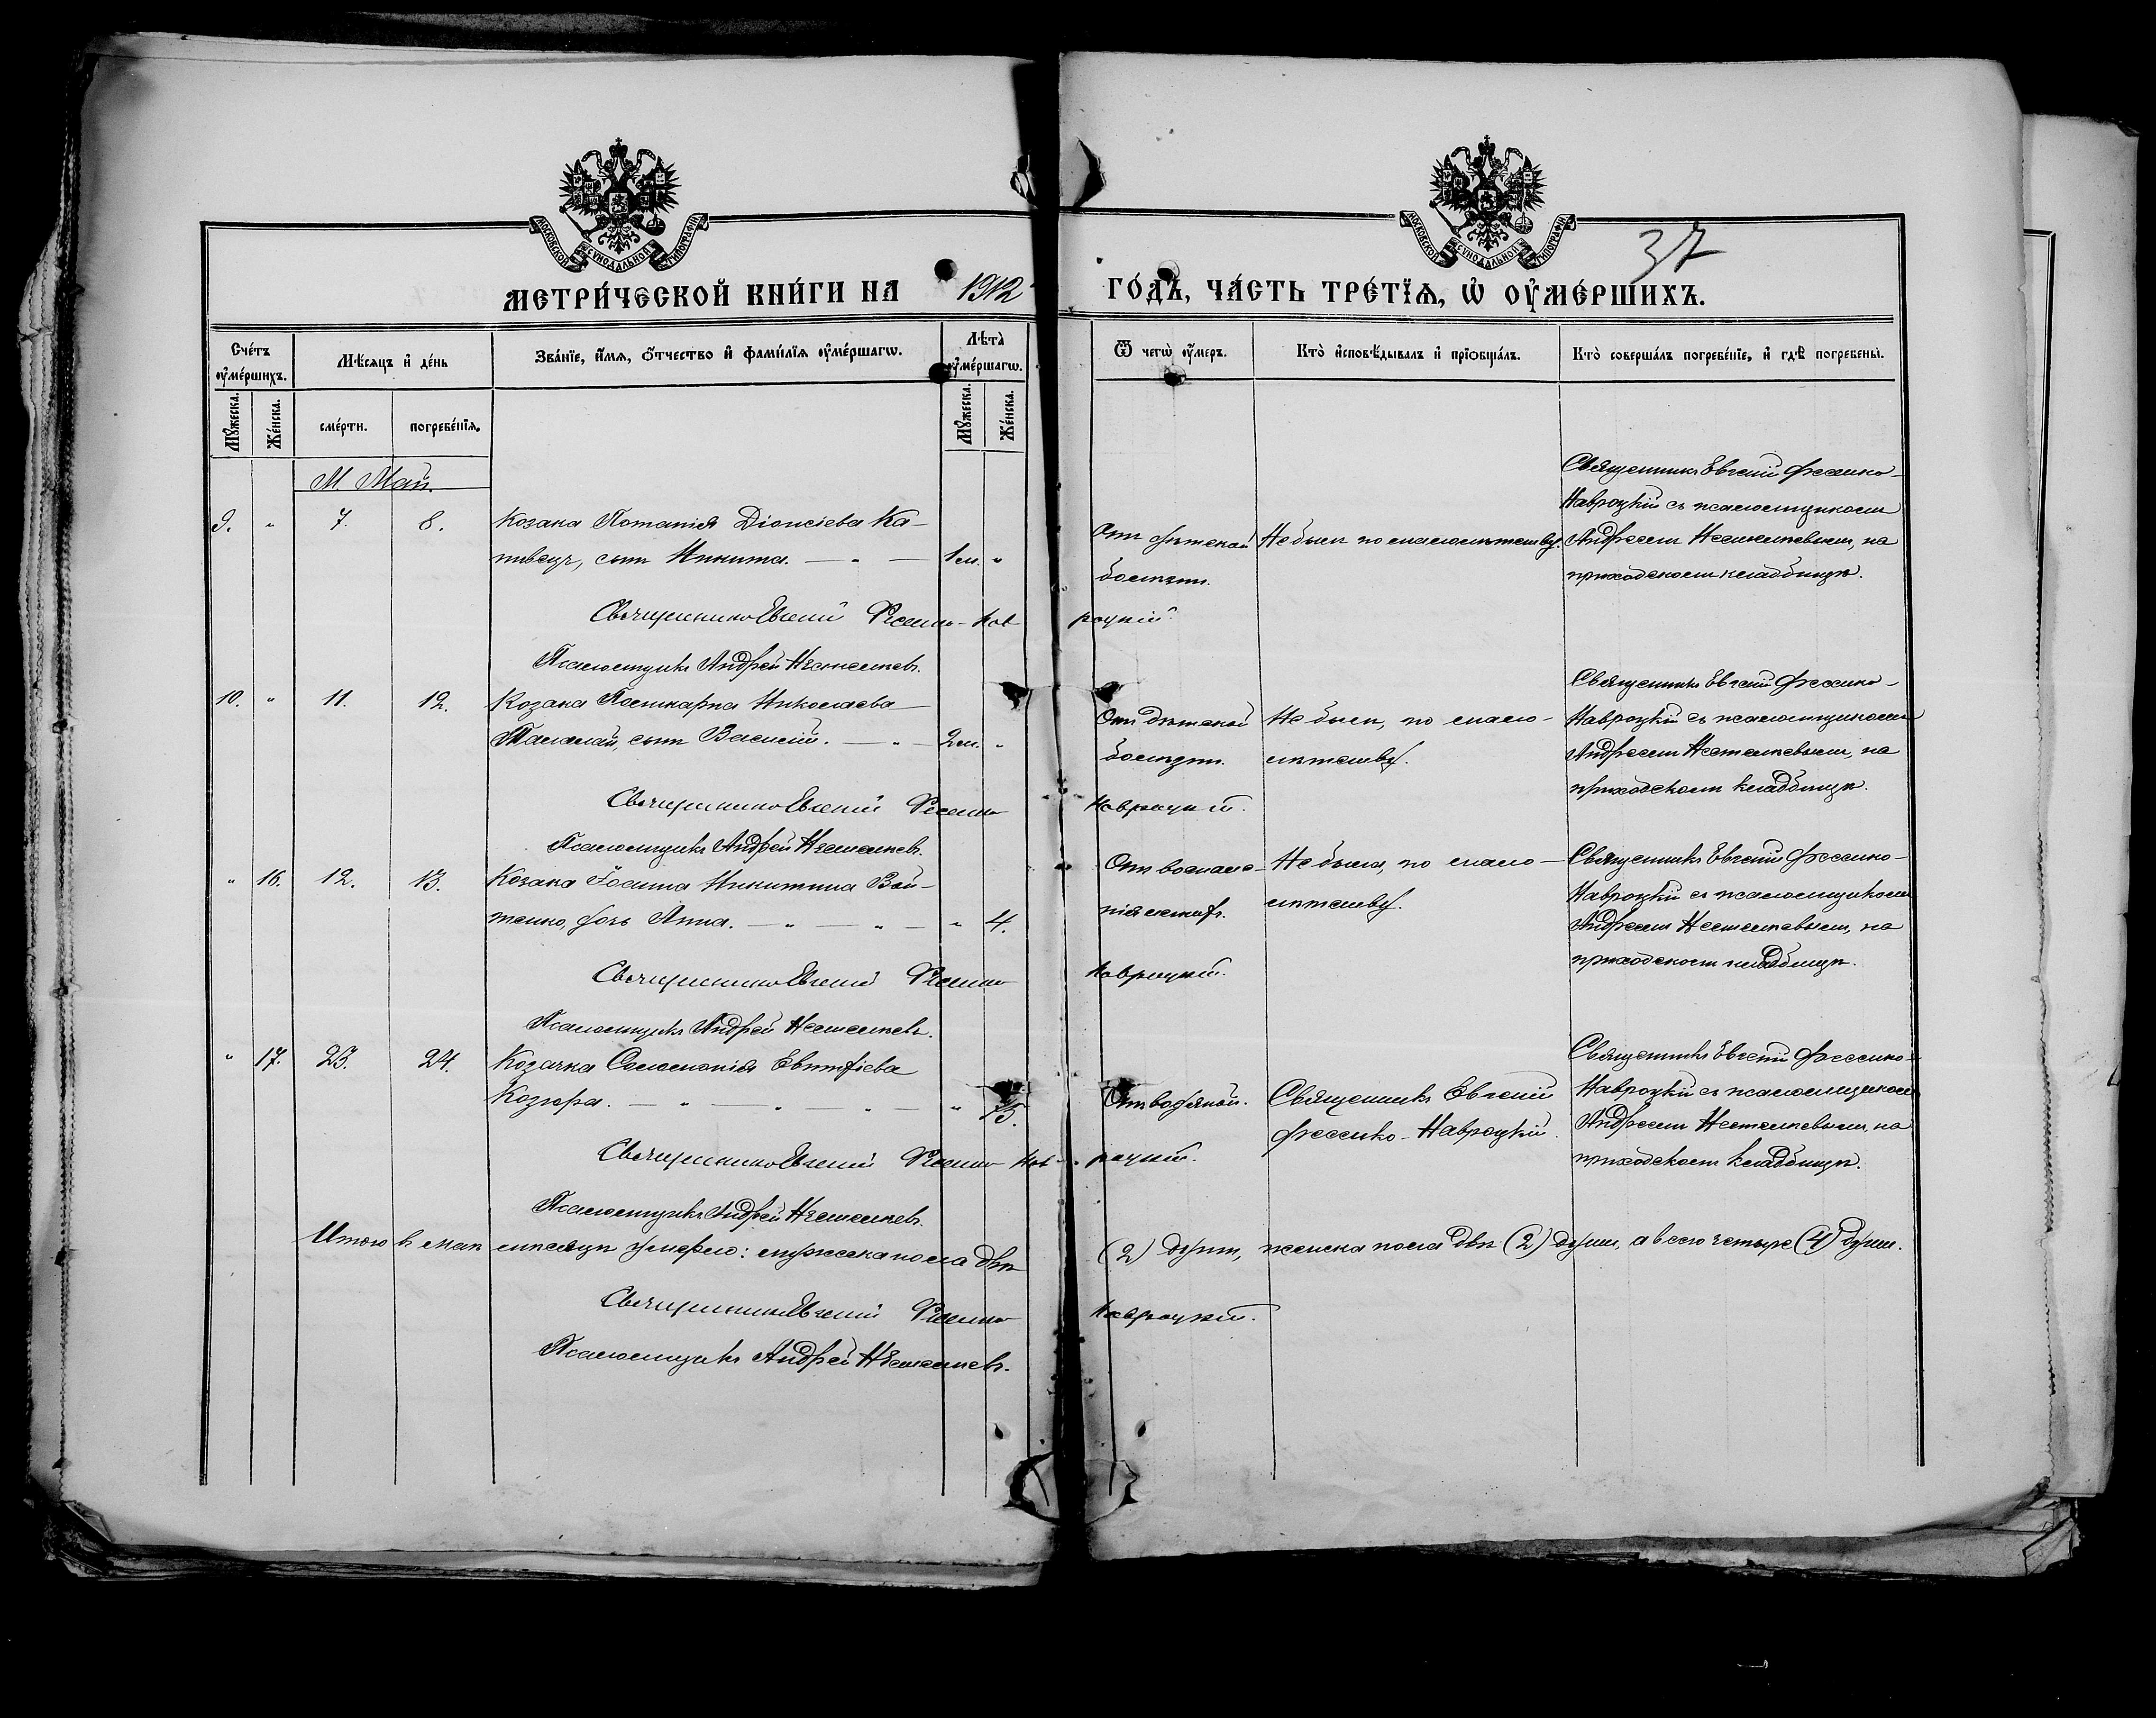 МОСКОВСКОЙ СѴНОДАЛЬНОЙ ТИПОГРАФІИ
МОСКОВСКОЙ СѴНОДАЛЬНОЙ ТИПОГРАФІИ
37
МЕТРИ́ЧЕСКОЙ КНИ́ГИ НА 1912 ГО́ДЪ, ЧА́СТЬ ТРЕ́ТЇѦ, Ѡ҆ ОУ҆МЕ́РШИХЪ.
Сче́тъ оу҆ме́ршихъ.
Мѣ́сяцъ и҆ де́нь
Зва́нїе, и҆́мѧ, ѻ҆́тчество и҆ фами́лїѧ оу҆ме́ршагѡ.
Лѣта̀ оу҆ме́ршагѡ.
Ѿ чегѡ̀ оу҆́меръ.
Кто̀ и҆сповѣ́дывалъ и҆ прїѡбща́лъ.
Кто̀ соверша́лъ погребе́нїе, и҆ гдѣ̀ погребены̀.
Мꙋ́жеска.
Же́нска.
сме́рти.
погребе́нїѧ.
Мꙋ́жеска.
Же́нска.
М. Май.
9. " 7. 8. Козака Потапія Діонисіева Ка-
пивецъ, сынъ Никита. — " — 1м. "
Отъ дѣтской
болѣзни.
Не былъ по малолѣтству.
Священникъ Евгеній Фесенко-
Навроцкій съ псаломщикомъ
Андреемъ Нестелѣевымъ, на
приходскомъ кладбищѣ.
Священникъ Евгеній Фесенко-Навроцкій.
Псаломщикъ Андрей Нестелѣевъ.
10. " 11. 12. Козака Поликарпа Николаева
Талалай, сынъ Василій. — " — 2м. "
Отъ дѣтской
болѣзни.
Не былъ, по мало-
лѣтству.
Священникъ Евгеній Фесенко-
Навроцкій съ псаломщикомъ
Андреемъ Нестелѣевымъ, на
приходскомъ кладбищѣ.
Священникъ Евгеній Фесенко Навроцкій.
Псаломщикъ Андрей Нестелѣевъ.
" 16. 12. 13. Козака Іоанна Никитина Вой-
тенко, дочь Анна. — " — " — " 4.
Отъ воспале-
нія легкихъ.
Не была, по мало-
лѣтству.
Священникъ Евгеній Фесенко-
Навроцкій съ псаломщикомъ
Андреемъ Нестелѣевымъ, на
приходскомъ кладбищѣ.
Священникъ Евгеній Фесенко Навроцкій.
Псаломщикъ Андрей Нестелѣевъ.
" 17. 23. 24. Козачка Соломонія Евтихіева
Козюра. — " — " — " — "
Отъ водяной.
Священникъ Евгеній
Фесенко-Навроцкій.
Священникъ Евгеній Фесенко-
Навроцкій съ псаломщикомъ
Андреемъ Нестелѣевымъ, на
приходскомъ кладбищѣ.
Священникъ Евгеній Фесенко Навроцкій.
Псаломщикъ Андрей Нестелѣевъ.
Итого въ маѣ мѣсяцѣ умерло: мужеска пола двѣ (2) души, женска пола двѣ (2) души, а всего четыре (4) души.
Священникъ Евгеній Фесенко Навроцкій.
Псаломщикъ Андрей Нестелѣевъ.